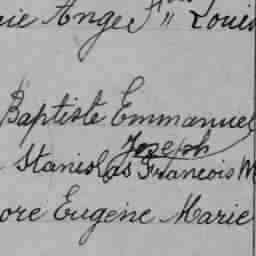 ie Ange F^ois " Louis
Baptiste Emmanuel
Joseph
Stanislas Francois M
ore Eugene Marie